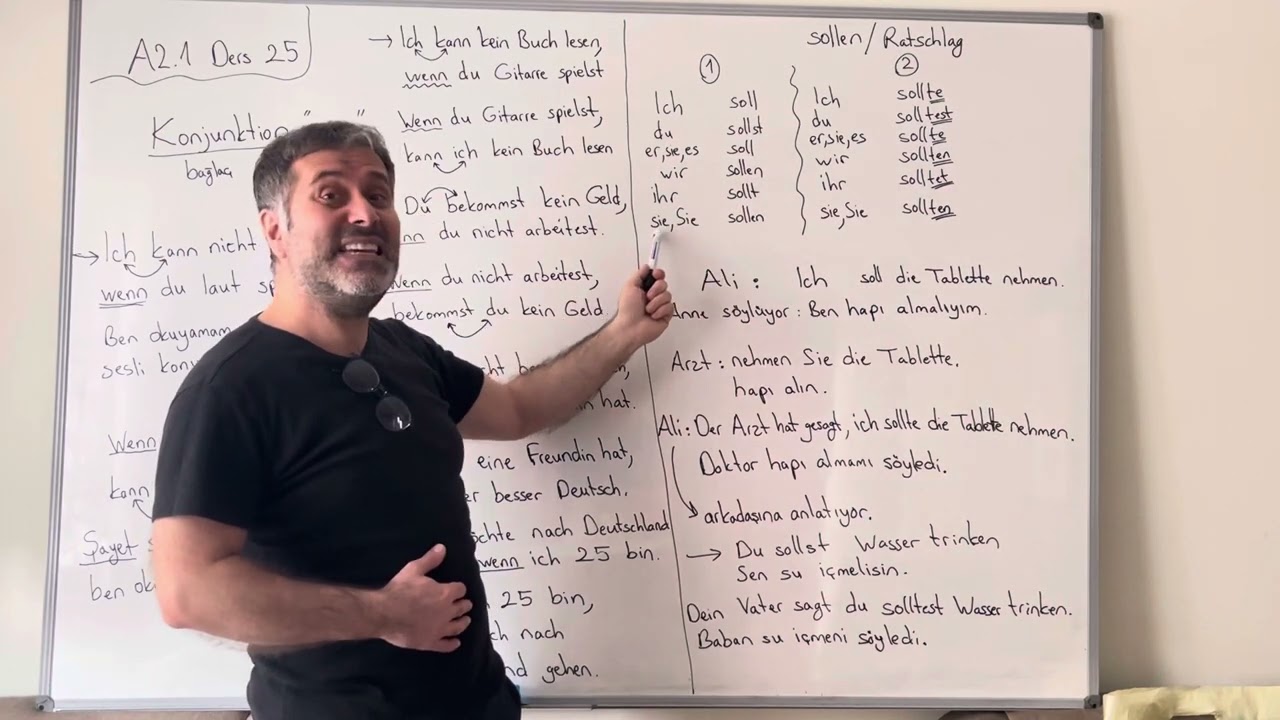 A2.1 Ders 25
Konjunktion " "
bağlaç
→ Ich kann nicht
wenn du laut
Ben okuyamam
sesli
Wenn
kann
Şayet
→ Ich kann kein Buch lesen,
wenn du Gitarre spielst
Wenn du Gitarre spielst,
kann ich kein Buch lesen
Du bekommst kein Geld,
du nicht arbeitest.
Wenn du nicht arbeitest,
bekommst du kein Geld.
hat.
eine Freundin hat,
besser Deutsch.
nach Deutschland
wenn ich 25 bin.
25 bin,
nach
gehen.
sollen / Ratschlag
1
Ich soll
du sollst
er,sie,es soll
wir sollen
ihr sollt
sie,Sie sollen
2
Ich sollte
du solltest
er,sie,es sollte
wir sollten
ihr solltet
sie,Sie sollten
Ali : Ich soll die Tablette nehmen.
Anne söylüyor : Ben hapı almalıyım.
Arzt : nehmen Sie die Tablette.
hapı alın.
Ali : Der Arzt hat gesagt, ich sollte die Tablette nehmen.
Doktor hapı almamı söyledi.
arkadaşına anlatıyor.
→ Du sollst Wasser trinken
Sen su içmelisin.
Dein Vater sagt du solltest Wasser trinken.
Baban su içmeni söyledi.